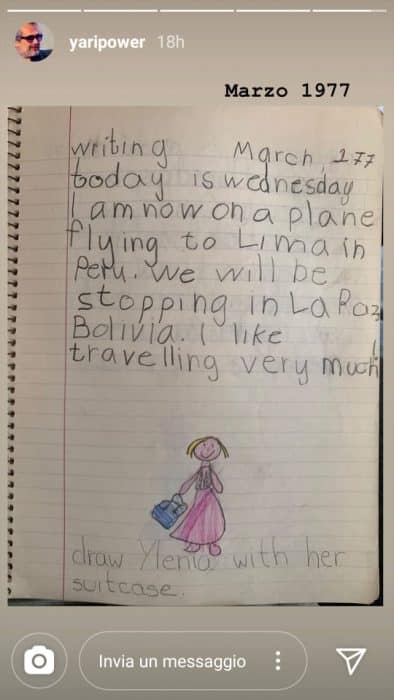 yaripower 18h
Marzo 1977
writing March, 177
today is wednesday
I am now on a plane
flying to Lima in
Peru. We will be
stopping in La Paz
Bolivia. I like
travelling very much
draw Ylenia with her
suitcase.
Invia un messaggio